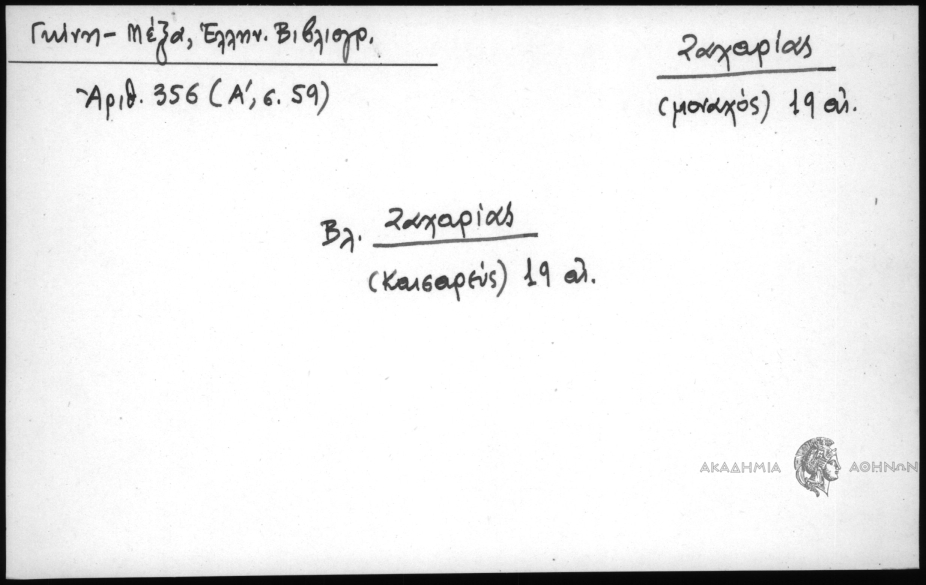 Γκίνη - Μέξα, Ἑλλην. Βιβλιογρ.
Ἀριθ. 356 (Α', σ. 59)
Ζαχαρίας
(μοναχός) 19 αἰ.
Βλ. Ζαχαρίας
(Καισαρεύς) 19 αἰ.
ΑΚΑΔΗΜΙΑ ΑΘΗΝΩΝ